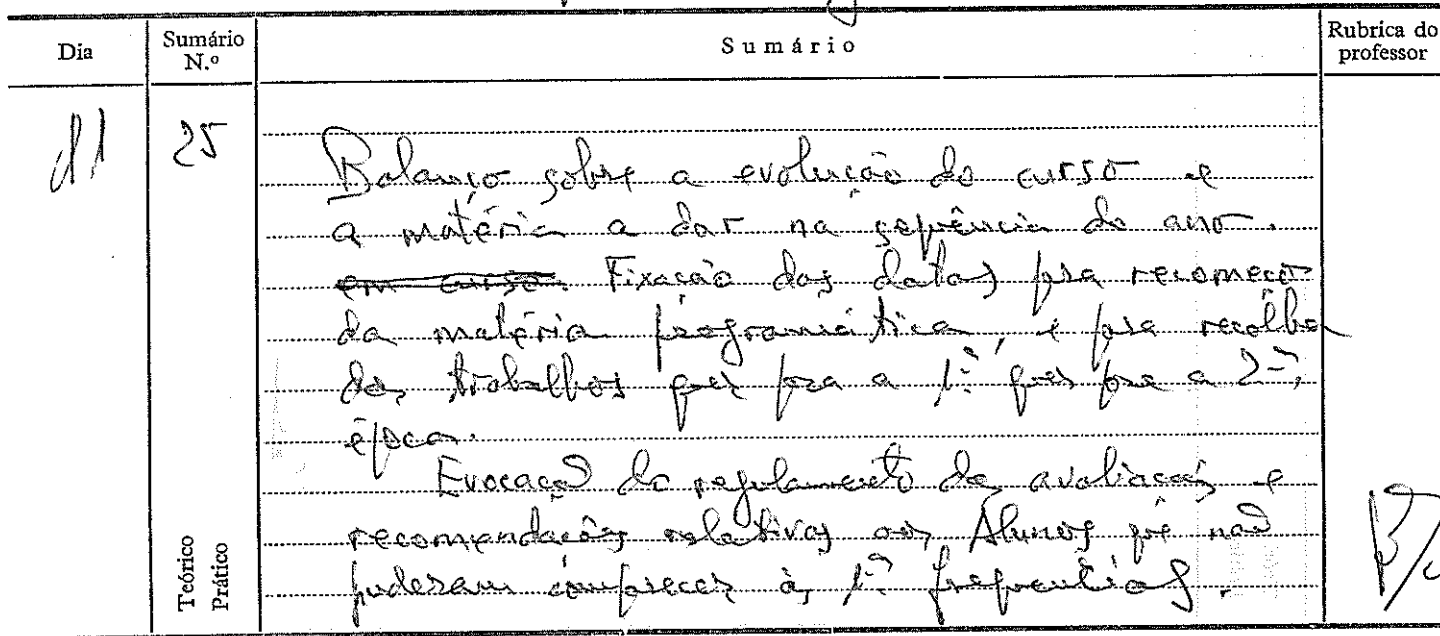 Dia
Sumário N.º
Sumário
Rubrica do professor
25
Balanço sobre a evolução do curso e
a matéria a dar na sequência do ano.
em curso. Fixação das datas pra recomeço
da matéria programática, e pra recolha
dos trabalhos quer pra a 1ª quer pra a 2ª,
época.
Evocação do regulamento de avaliação e
recomendações relativas aos Alunos que não
puderam comparecer às 1ªs frequências.
Teórico
Prático